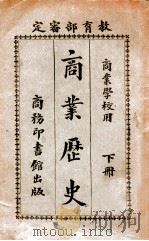 教育部審定
商業學校用
下冊
商業歷史
商務印書館出版